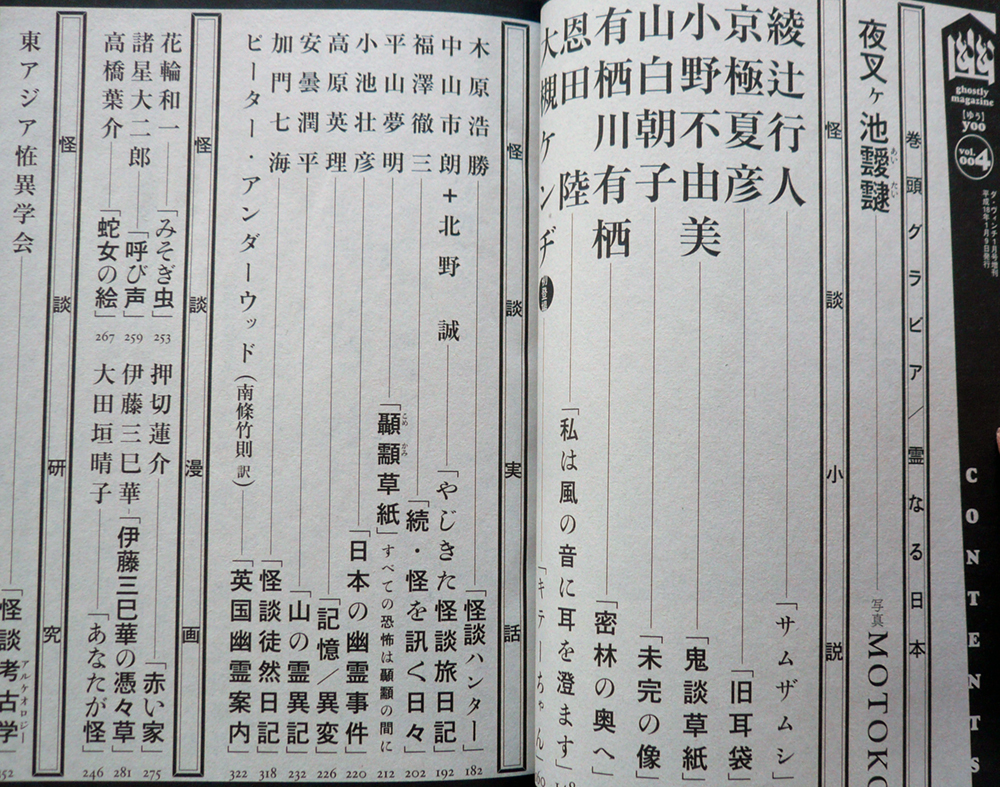 幽
ghostly
magazine
【ゆう】
yoo
vol.
004
ダ・ヴィンチ1月号増刊
平成18年1月9日発行
CONTENTS
巻頭グラビア／霊なる日本
夜叉ヶ池靉靆 あいたい 写真 MOTOKO
怪談小説
綾辻行人 「サムザムシ」
京極夏彦 「旧耳袋」
小野不由美 「鬼談草紙」
山白朝子 「未完の像」
有栖川有栖 「密林の奥へ」
恩田陸 「私は風の音に耳を澄ます」
大槻ケンヂ
怪談実話
木原浩勝 「怪談ハンター」 182
中山市朗＋北野誠 「やじきた怪談旅日記」 192
福澤徹三 「続・怪を訊く日々」 202
平山夢明 「顳顬草紙」 こめかみ すべての恐怖は顳顬の間に 212
小池壮彦 「日本の幽霊事件」 220
高原英理 「記憶／異変」 226
安曇潤平 「山の霊異記」 232
加門七海 「怪談徒然日記」 318
ピーター・アンダーウッド（南條竹則 訳） 「英国幽霊案内」 322
怪談漫画
花輪和一 「みそぎ虫」 253
諸星大二郎 「呼び声」 259
高橋葉介 「蛇女の絵」 267
押切蓮介 「赤い家」 275
伊藤三巳華 「伊藤三巳華の憑々草」 281
大田垣晴子 「あなたが怪」 246
怪談研究
東アジア恠異学会 「怪談考古学 アルケオロジー